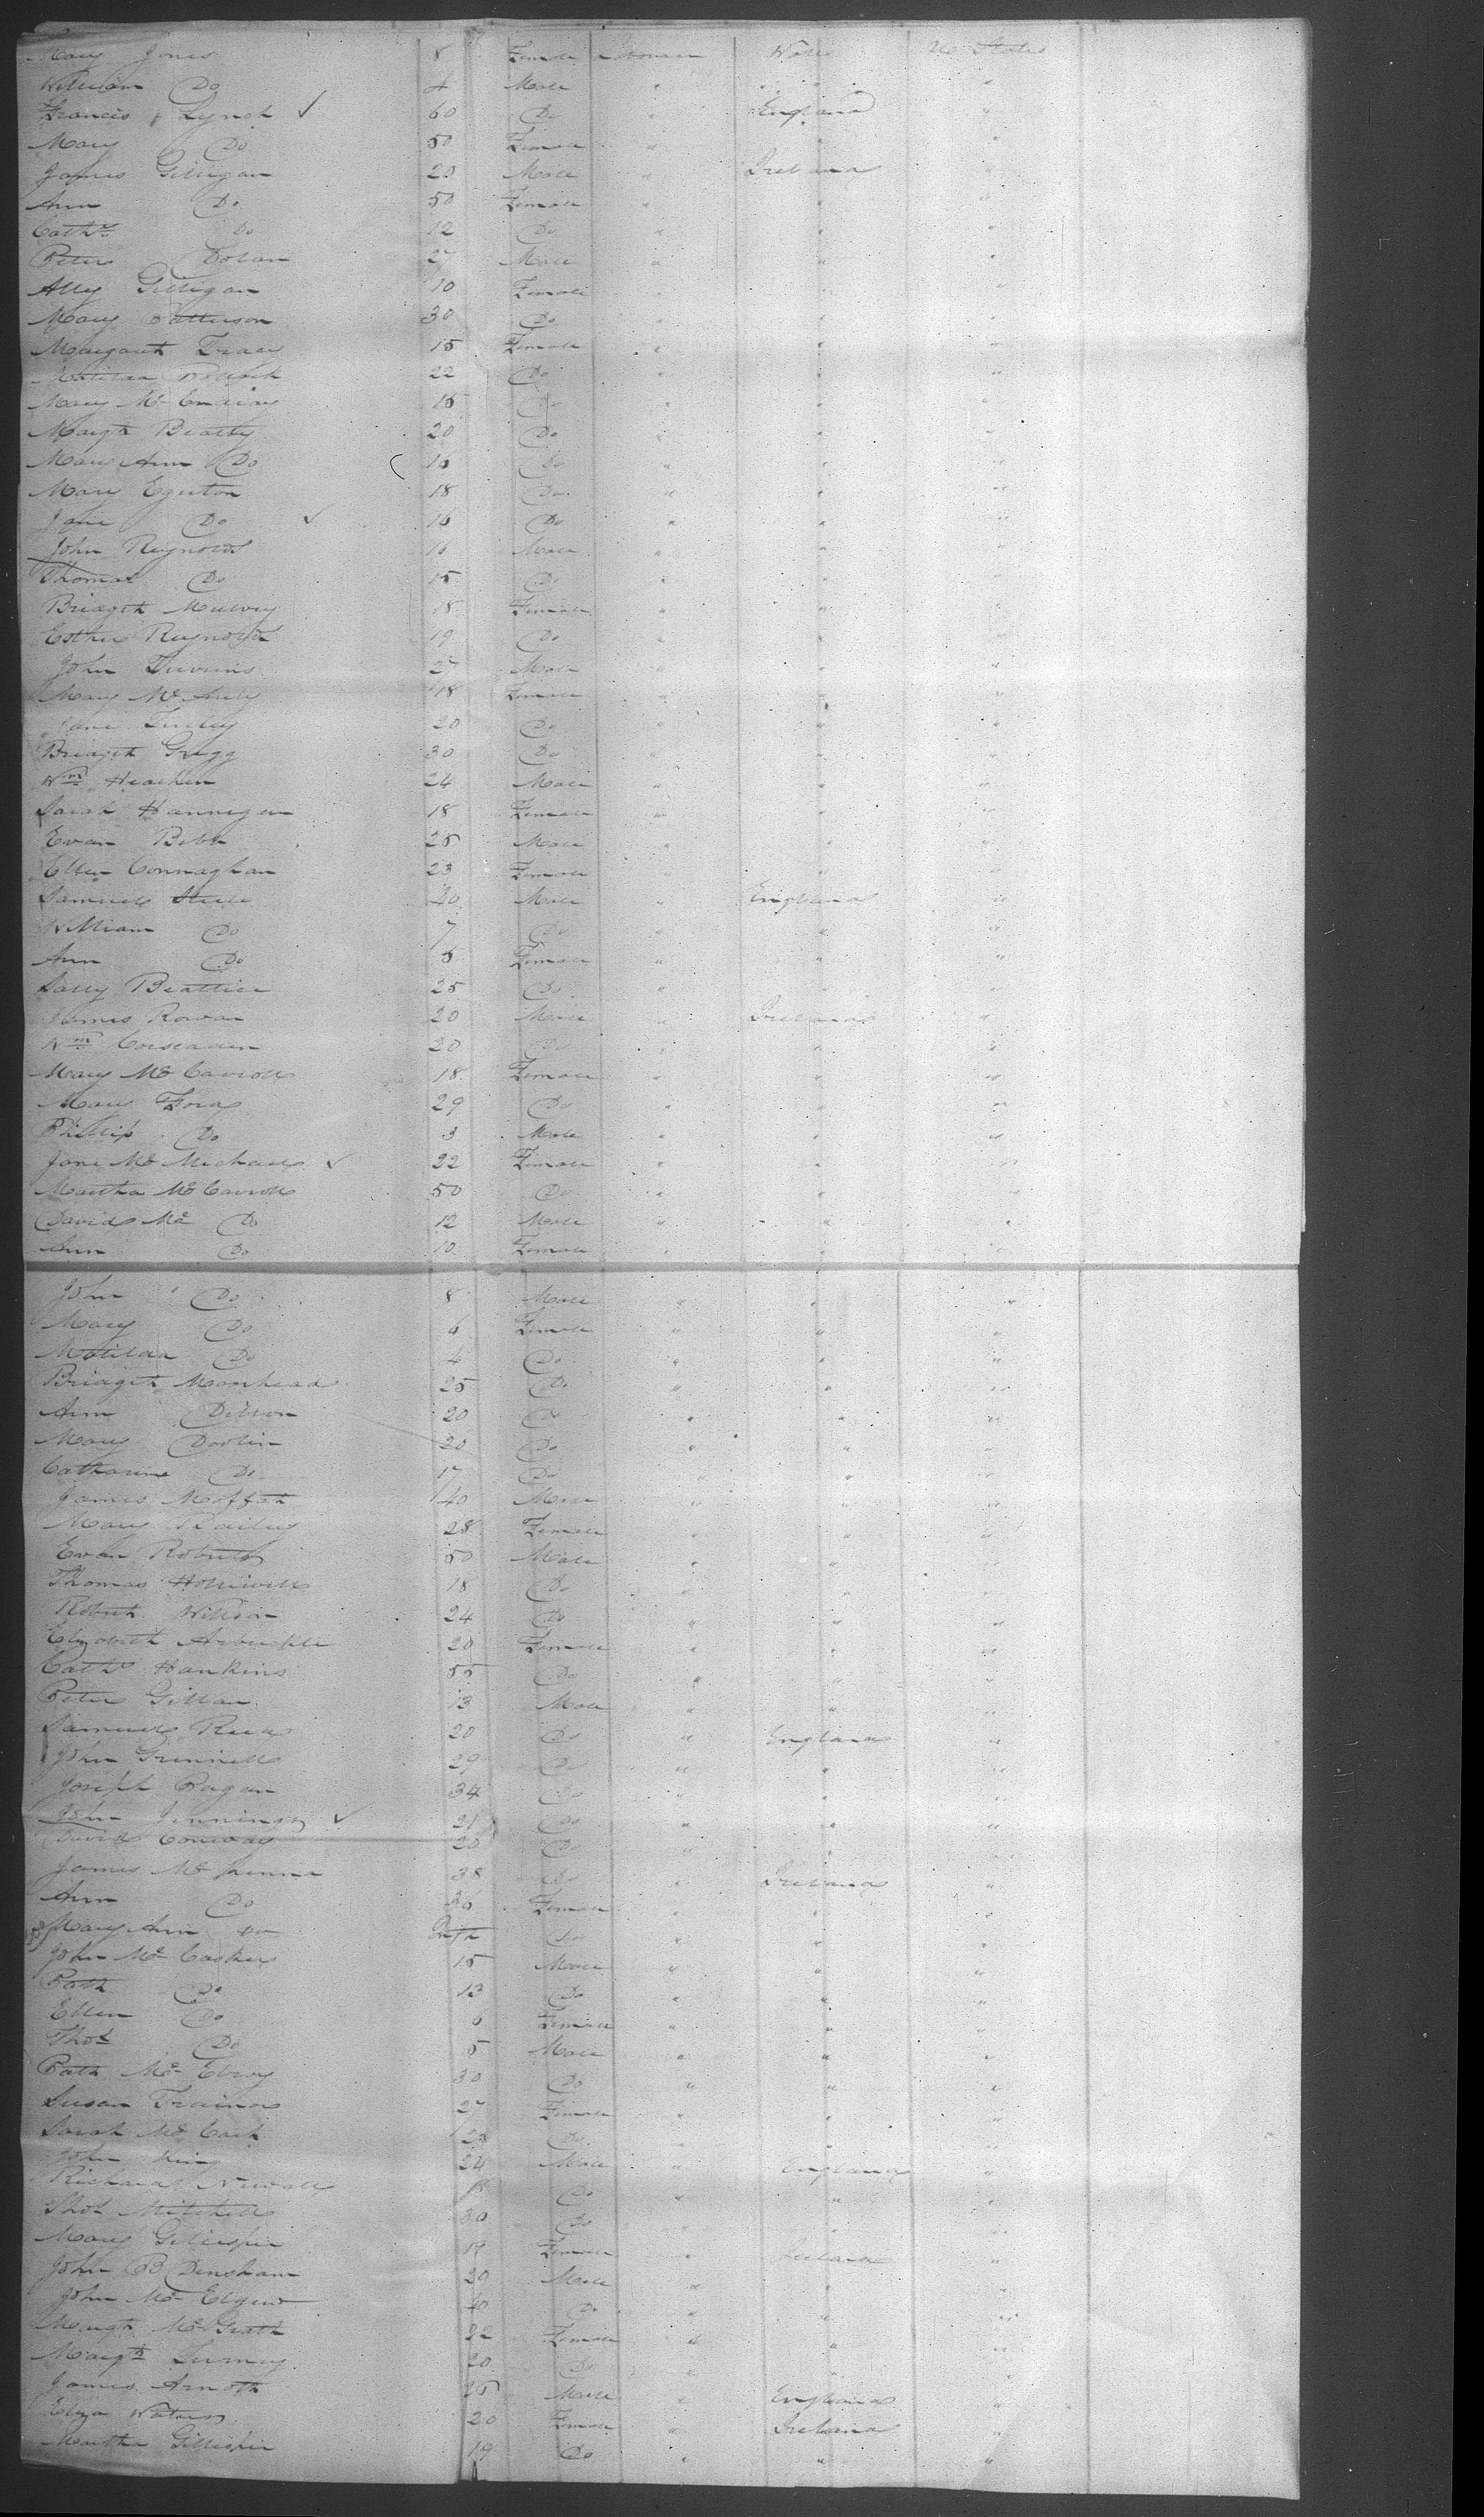 Mary Jones 8 Female Wales U States
William Do 4 Male " " "
Francis Lynch ✓ 60 Do " England "
Mary Do 50 Female " " "
James Gilligan 20 Male " Ireland "
Ann Do 50 Female " " "
Cathe Do 12 Do " " "
Peter Dolan 27 Male " " "
Ally Gilligan 10 Female " " "
Mary Patterson 30 Do " " "
Margaret Tracy 15 Female " " "
Matilda 22 Do " " "
Mary Mc 15 Do " " "
Margt Beatty 20 Do " " "
Mary Ann Do 16 Do " " "
Mary Egerton 18 Do " " "
Jane Do ✓ 16 Do " " "
John Reynolds 16 Male " " "
Thomas Do 15 Do " " "
Bridget Mulvey 18 Female " " "
Esther Reynolds 19 Do " " "
John 27 Male " " "
Mary Mc 18 Female " " "
Jane 20 Do " " "
Bridget Gregg 30 Do " " "
Wm 24 Male " " "
Sarah Hannigan 18 Female " " "
Evan 25 Male " " "
Ellen Connaghan 23 Female " " "
Samuel Steele 40 Male " England "
William Do 7 Do " " "
Ann Do 5 Female " " "
Sally Beattice 25 Do " " "
James Rowan 20 Male " Ireland "
Wm Corscaden 20 Do " " "
Mary McCarroll 18 Female " " "
Mary 29 Do " " "
Phillip Do 3 Male " " "
Jane McMichael ✓ 22 Female " " "
Martha McCarroll 50 Do " " "
David Mc Do 12 Male " " "
Ann Do 10 Female " " "
John Do 8 Male " " "
Mary Do 6 Female " " "
Matilda Do 4 Do " " "
Bridget Moorhead 25 Do " " "
Ann Dillon 20 Do " " "
Mary Doolin 20 Do " " "
Catharine Do 17 Do " " "
James Moffatt 40 Male " " "
Mary Bailey 28 Female " " "
Evan Roberts 50 Male " " "
Thomas 18 Do " " "
Robert Willson 24 Do " " "
Elizabeth Arbuckle 20 Female " " "
Cathe Hankins 55 Do " " "
Peter Gillan 13 Male " " "
Samuel Reed 20 Do " England "
John Grinnell 29 Do " " "
Joseph Pagan 34 Do " " "
John Jennings ✓ 21 Do " " "
David Conway 20 Do " " "
James McKenna 38 Do " Ireland "
Ann Do 36 Female " " "
Mary Ann Do Inft Do " " "
John McCasker 15 Male " " "
Patk Do 13 Do " " "
Ellen Do 6 Female " " "
Thos Do 5 Male " " "
Patk McElroy 30 Do " " "
Susan Trainor 27 Female " " "
Sarah Mc Do " " "
John King 24 Male " England "
Richard Newall Do " " "
Thos Mitchell 30 Do " " "
Mary Gillespie 19 Female " Ireland "
John B Densham 20 Male " " "
John Mc 40 Do " " "
Margt McGrath 22 Female " " "
Margt 20 Do " " "
James Arnott 25 Male " England "
Eliza Waters 20 Female " Ireland "
Martha Gillespie 19 Do " " "